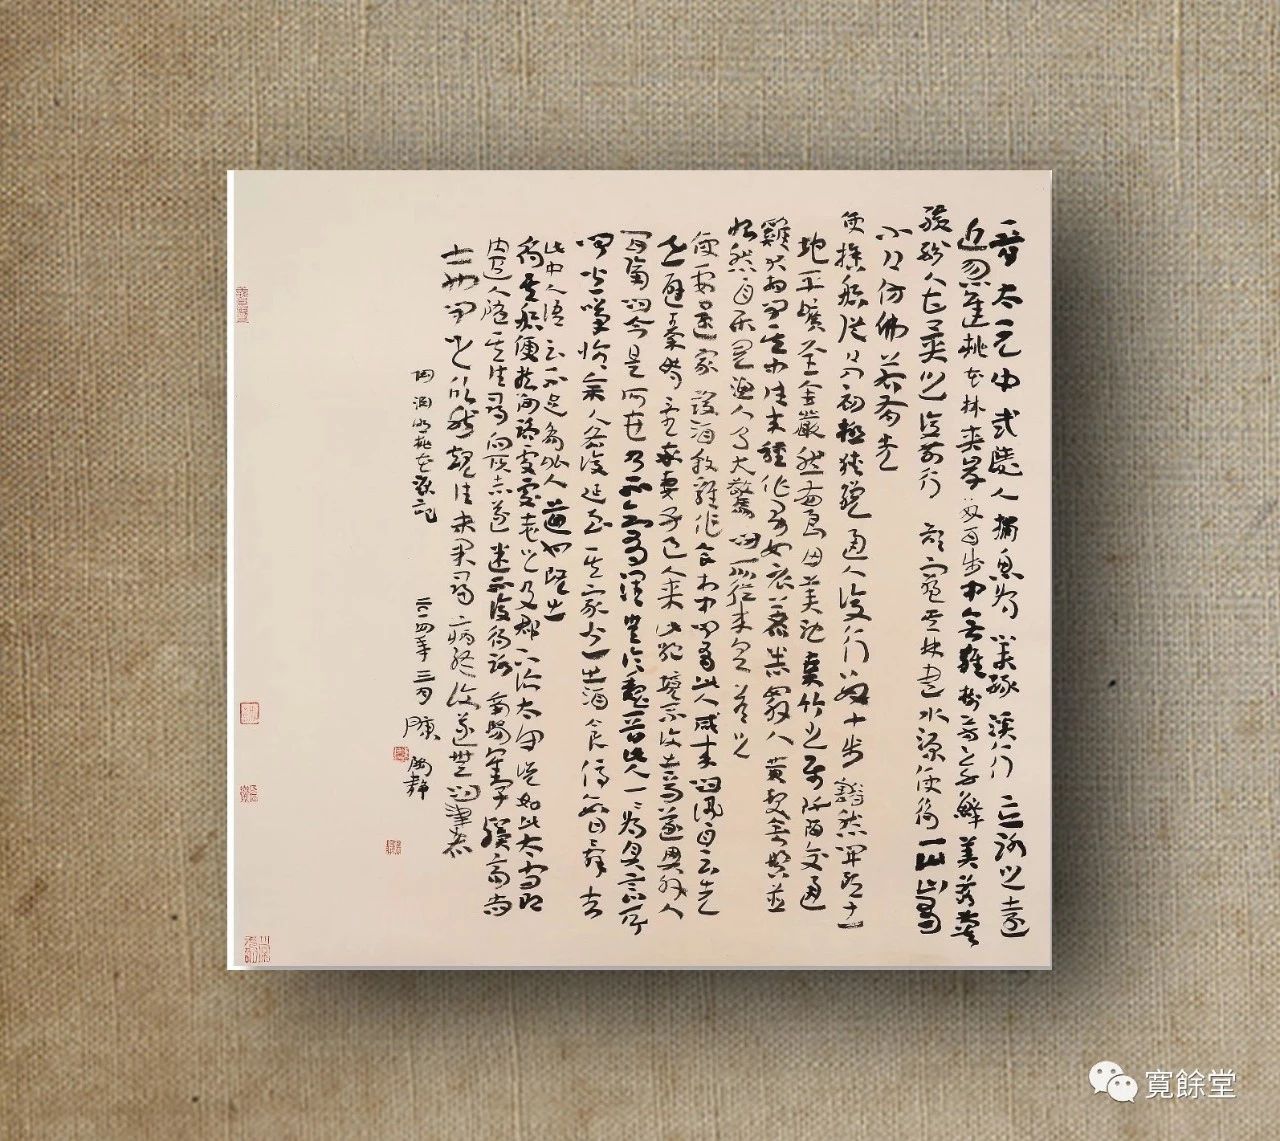 晋太元中武陵人捕魚為業緣溪行忘路之遠
近忽逢桃花林夾岸數百步中無雜樹芳草鮮美落英
繽紛漁人甚異之復前行欲窮其林林盡水源便得一山山有
小口仿佛若有光
便捨船從口入初極狹纔通人復行數十步豁然開朗土
地平曠屋舍儼然有良田美池桑竹之屬阡陌交通
雞犬相聞其中往來種作男女衣著悉如外人黃髮垂髫並
怡然自樂見漁人乃大驚問所從來具答之
便要還家設酒殺雞作食村中聞有此人咸來問訊自云先
世避秦時亂率妻子邑人來此絕境不復出焉遂與外人
間隔問今是何世乃不知有漢無論魏晉此人一一為具言所
聞皆嘆惋餘人各復延至其家皆出酒食停數日辭去
此中人語云不足為外人道也既出
得其船便扶向路處處志之及郡下詣太守說如此太守即
遣人隨其往尋向所志遂迷不復得路南陽劉子驥高尚
士也聞之欣然規往未果尋病終後遂無問津者
陶淵明桃花源記
二〇一四年三月
寬餘堂